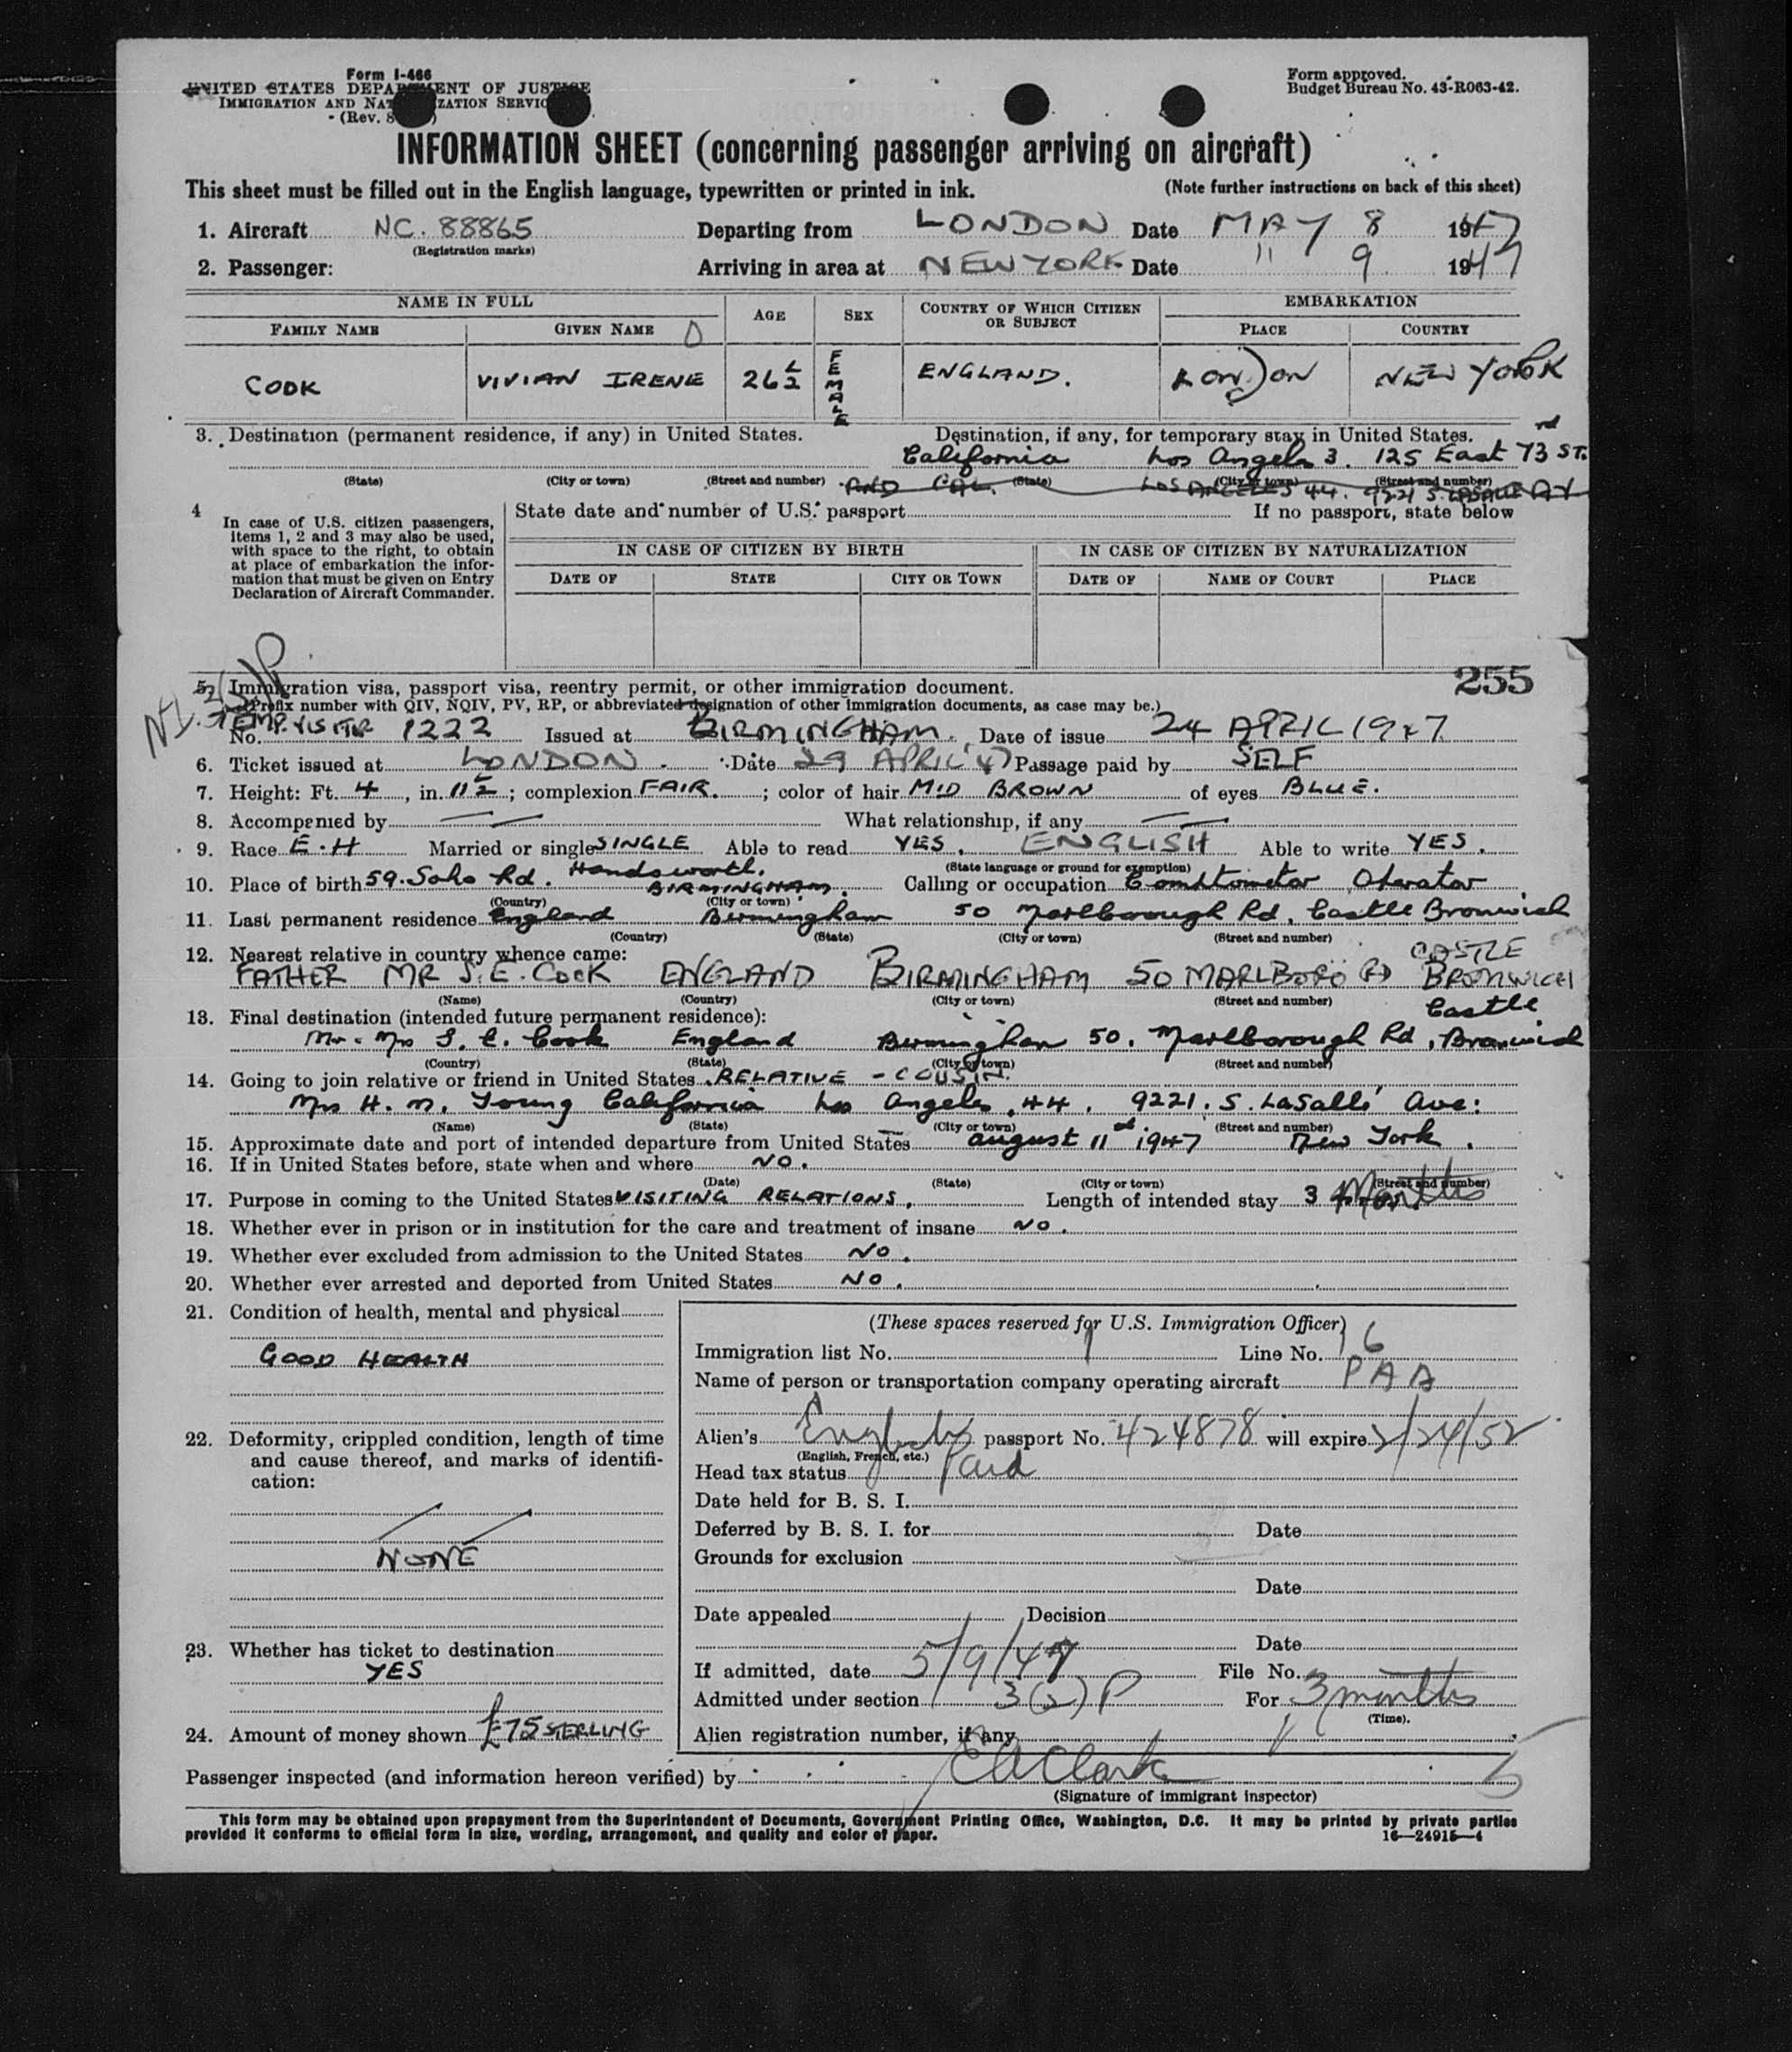 Form I-466
UNITED STATES DEPARTMENT OF JUSTICE
IMMIGRATION AND NATURALIZATION SERVICE
(Rev. 8
Form approved.
Budget Bureau No. 43-R063-42.
INFORMATION SHEET (concerning passenger arriving on aircraft)
This sheet must be filled out in the English language, typewritten or printed in ink. (Note further instructions on back of this sheet)
1. Aircraft NC. 88865 Departing from LONDON Date MAY 8 1947
(Registration marks)
2. Passenger: Arriving in area at NEW YORK Date " 9 1947
NAME IN FULL AGE SEX COUNTRY OF WHICH CITIZEN OR SUBJECT EMBARKATION
FAMILY NAME GIVEN NAME PLACE COUNTRY
COOK VIVIAN IRENE 26 1/2 FEMALE ENGLAND. LONDON NEW YORK
3. Destination (permanent residence, if any) in United States. Destination, if any, for temporary stay in United States.
California Los Angeles 3. 125 East 73rd ST.
(State) (City or town) (Street and number) (State) (City or town) (Street and number)
AND CAL. LOS ANGELES 44. 9221 S. LASALLE AV
4 In case of U.S. citizen passengers, items 1, 2 and 3 may also be used, with space to the right, to obtain at place of embarkation the information that must be given on Entry Declaration of Aircraft Commander.
State date and number of U.S. passport If no passport, state below
IN CASE OF CITIZEN BY BIRTH IN CASE OF CITIZEN BY NATURALIZATION
DATE OF STATE CITY OR TOWN DATE OF NAME OF COURT PLACE
255
5. Immigration visa, passport visa, reentry permit, or other immigration document.
(Prefix number with QIV, NQIV, PV, RP, or abbreviated designation of other immigration documents, as case may be.)
No. TEMP. VISITOR 1222 Issued at BIRMINGHAM. Date of issue 24 APRIL 1947
6. Ticket issued at LONDON Date 29 APRIL 47 Passage paid by SELF
7. Height: Ft. 4, in. 11 1/2; complexion FAIR.; color of hair MID BROWN of eyes BLUE.
8. Accompanied by — What relationship, if any —
9. Race E.H Married or single SINGLE Able to read YES. ENGLISH Able to write YES.
(State language or ground for exemption)
10. Place of birth 59. Soho Rd. Handsworth. BIRMINGHAM. Calling or occupation Comptometor Operator
(Country) (City or town)
11. Last permanent residence England Birmingham 50 Marlborough Rd, Castle Bromwich
(Country) (State) (City or town) (Street and number)
12. Nearest relative in country whence came: CASTLE
FATHER MR S.E. COOK ENGLAND BIRMINGHAM 50 MARLBORO RD BROMWICH
(Name) (Country) (City or town) (Street and number)
13. Final destination (intended future permanent residence): Castle
Mr. Mrs S. E. Cook England Birmingham 50. Marlborough Rd, Bromwich
(Country) (State) (City or town) (Street and number)
14. Going to join relative or friend in United States. RELATIVE - COUSIN.
Mrs H. M. Young California Los Angeles. 44. 9221. S. LaSalle Ave:
(Name) (State) (City or town) (Street and number)
15. Approximate date and port of intended departure from United States august 11 1947 New York.
16. If in United States before, state when and where NO.
(Date) (State) (City or town) (Street and number)
17. Purpose in coming to the United States VISITING RELATIONS. Length of intended stay 3 Months
18. Whether ever in prison or in institution for the care and treatment of insane NO.
19. Whether ever excluded from admission to the United States NO.
20. Whether ever arrested and deported from United States NO.
21. Condition of health, mental and physical
GOOD HEALTH
22. Deformity, crippled condition, length of time and cause thereof, and marks of identification:
NONE
23. Whether has ticket to destination
YES
24. Amount of money shown £75 STERLING
(These spaces reserved for U.S. Immigration Officer)
Immigration list No. 1 Line No. 16
Name of person or transportation company operating aircraft PAA
Alien's English passport No. 424878 will expire 2/24/52
(English, French, etc.)
Head tax status Paid
Date held for B. S. I.
Deferred by B. S. I. for Date
Grounds for exclusion
Date
Date appealed Decision
Date
If admitted, date 5/9/47 File No.
Admitted under section 3(2) P For 3 months
(Time).
Alien registration number, if any
Passenger inspected (and information hereon verified) by EAClark
(Signature of immigrant inspector)
This form may be obtained upon prepayment from the Superintendent of Documents, Government Printing Office, Washington, D.C. It may be printed by private parties
provided it conforms to official form in size, wording, arrangement, and quality and color of paper. 16—24915-4